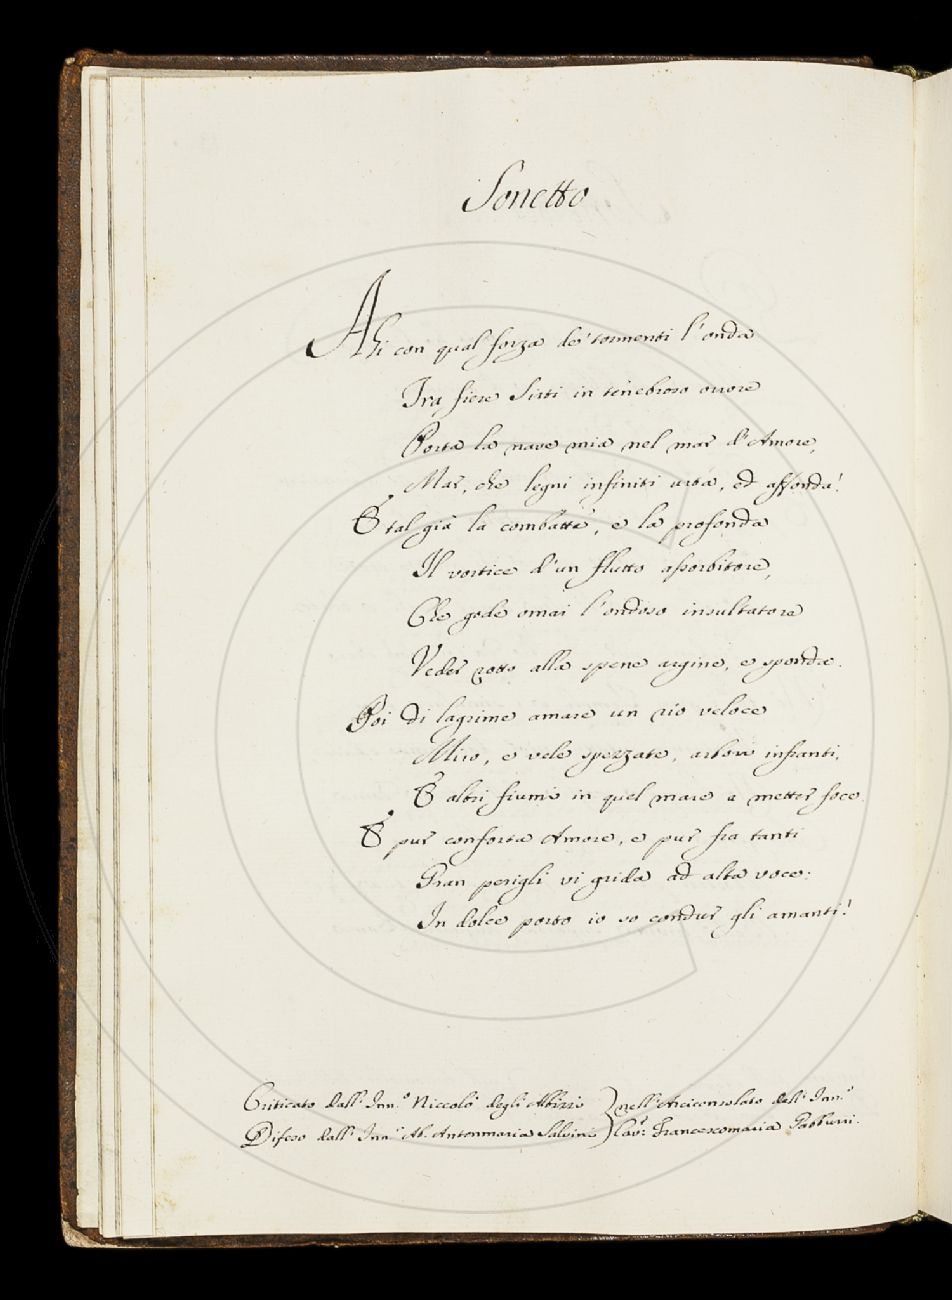 Sonetto
Ahi con qual forza de' tormenti l'onda
Tra fiere Sirti in tenebroso orrore
Porta la nave mia nel mar d'Amore,
Mar, che legni infiniti urta, ed affonda!
E tal già la combatte, e la profonda
Il vortice d'un flutto assorbitore,
Che gode omai l'ondoso insultatore
Veder rotto alla spene argine, e sponda.
Poi di lagrime amare un rio veloce
Miro, e vele spezzate, arbori infranti,
E altri fiumi in quel mare a metter foce.
E pur conforta Amore, e pur fra tanti
Gran perigli vi grida ad alta voce:
In dolce porto io so condur gli amanti!
Criticato dall' Inn.º Niccolò degli Albizzi } nell'Arciconsolato dell' Inn.º
Difeso dall' Inn.º Ab. Antonmaria Salvini } Cav.r Francescomaria Gabburri.